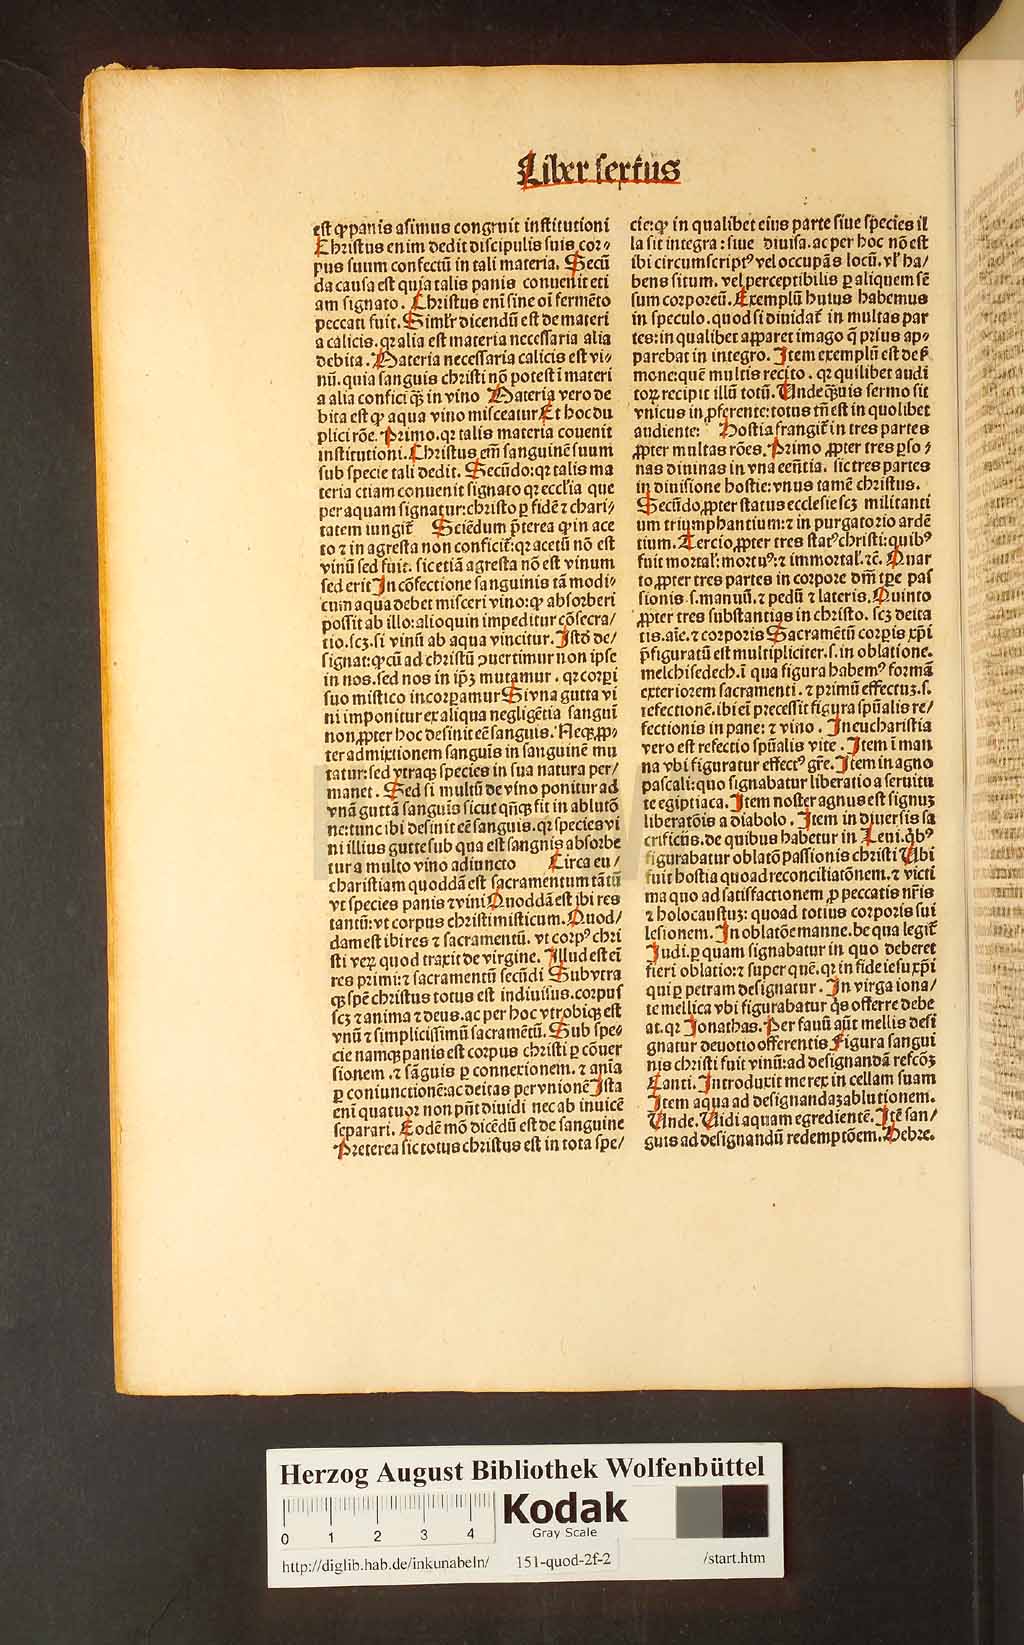 Liber sextus
est ꝙ panis asimus congruit institutioni
Christus enim dedit discipulis suis cor⸗
pus suum confectū in tali materia. Secū
da causa est quia talis panis conuenit eti
am signato. Christus enī sine oī fermēto
peccati fuit. Simĺr dicendū est de materi
a calicis. qꝛ alia est materia necessaria alia
debita. Materia necessaria calicis est vi⸗
nū. quia sanguis christi nō potest ī materi
a alia confici qͣꝫ in vino Materia vero de
bita est ꝙ aqua vino misceatur Et hoc du
plici rōe. Primo. qꝛ talis materia couenit
institutioni. Christus em̄ sanguinē suum
sub specie tali dedit. Secūdo: qꝛ talis ma
teria etiam conuenit signato qꝛ eccĺia que
per aquam signatur: christo ꝑ fidē ⁊ chari⸗
tatem iungit᷑ Sciēdum p̄terea ꝙ in ace
to ⁊ in agresta non conficit᷑: qꝛ acetū nō est
vinū sed fuit. sic etiā agresta nō est vinum
sed erit In cōfectione sanguinis tā modi⸗
cum aqua debet misceri vino: ꝙ absorberi
possit ab illo: alioquin impeditur cōsecra/
tio. scꝫ. si vinū ab aqua vincitur. Istd̄ de/
signat: ꝙ cū ad christū ↄuertimur non ipse
in nos. sed nos in ip̄ꝫ mutamur. qꝛ corꝑi
suo mistico incorꝑamur Si vna gutta vi
ni imponitur ex aliqua negligētia sanguī
non ꝓpter hoc desinit eē sanguis. Neqꝫ ꝓp⸗
ter admixtionem sanguis in sanguinē mu
tatur: sed vtraqꝫ species in sua natura per/
manet. Sed si multū de vino ponitur ad
vnā guttā sanguis sicut qn̄qꝫ fit in ablutō
ne: tunc ibi desinit eē sanguis. qꝛ species vi
ni illius gutte sub qua est sangnis absorbe
tur a multo vino adiuncto Circa eu/
charistiam quoddā est sacramentum tātū
vt species panis ⁊ vini Quoddā est ibi res
tantū: vt corpus christi misticum. Quod/
dam est ibi res ⁊ sacramentū. vt corpꝰ chri
sti verꝫ quod traxit de virgine. Illud est eī
res primi: ⁊ sacramentū secūdi Sub vtra
qꝫ spē christus totus est indiuisus. corpus
scꝫ ⁊ anima ⁊ deus. ac per hoc vtrobiqꝫ est
vnū ⁊ simplicissimū sacramētū. Sub spe⸗
cie namqꝫ panis est corpus christi ꝑ cōuer
sionem. ⁊ sāguis ꝑ connexionem. ⁊ anīa
ꝑ coniunctionē: ac deitas per vnionē Ista
enī quatuor non pn̄t diuidi nec ab inuicē
separari. Eodē mō dicēdū est de sanguine
Preterea sic totus christus est in tota spe/
cie: ꝙ in qualibet eius parte siue species il
la sit integra: siue diuisa. ac per hoc nō est
ibi circumscriptꝰ vel occupās locū. vĺ ha/
bens situm. vel perceptibilis ꝑ aliquem sē
sum corporeū. Exemplū huius habemus
in speculo. quod si diuidat᷑ in multas par
tes: in qualibet apparet imago q̄ prius ap⸗
parebat in integro. Item exemplū est de ẜ
mone: quē multis recito. qꝛ quilibet audi
toꝝ recipit illū totū. Unde qͣuis sermo sit
vnicus in ꝓferente: totus tn̄ est in quolibet
audiente: Hostia frangit᷑ in tres partes
ꝓpter multas rōes. Primo ꝓpter tres ꝑso⸗
nas diuinas in vna eēntia. sic tres partes
in diuisione hostie: vnus tamē christus.
Secūdo ꝓpter status ecclesie scꝫ militanti
um triumphantium: ⁊ in purgatorio ardē
tium. Tercio ꝓpter tres statꝰ christi: quibꝰ
fuit mortaĺ: mortuꝰ: ⁊ immortaĺ. ⁊c̄. Quar
to ꝓpter tres partes in corpore dn̄i tꝑe pas
sionis .s. manuū. ⁊ pedū ⁊ lateris. Quinto
ꝓpter tres substantias in christo. scꝫ deita
tis. aīe. ⁊ corporis Sacramētū corꝑis xp̄i
p̄figuratū est multipliciter .s. in oblatione.
melchisedech. ī qua figura habemꝰ formā
exteriorem sacramenti. ⁊ primū effectuꝫ .s.
refectionē. ibi eī precessit figura spūalis re/
fectionis in pane: ⁊ vino. In eucharistia
vero est refectio spūalis vite. Item ī man
na vbi figuratur effectꝰ gr̄e. Item in agno
pascali: quo signabatur liberatio a seruitu
te egiptiaca. Item noster agnus est signuꝫ
liberatōis a diabolo. Item in diuersis sa
crificijs. de quibus habetur in Leui. qͥbꝰ
figurabatur oblatō passionis christi Ubi
fuit hostia quoad reconciliatōnem. ⁊ victi
ma quo ad satisfactionem ꝓ peccatis nr̄is
⁊ holocaustuꝫ: quoad totius corporis sui
lesionem. In oblatōe manne. be qua legit᷑
Judi. ꝑ quam signabatur in quo deberet
fieri oblatio: ⁊ super quē. qꝛ in fide iesu xp̄i
qui ꝑ petram designatur. In virga iona/
te mellica vbi figurabatur qͥs offerre debe
at. qꝛ Jonathas. Per fauū aūt mellis desi
gnatur deuotio offerentis Figura sangui
nis christi fuit vinū: ad designandā refcōꝫ
Canti. Introduxit me rex in cellam suam
Item aqua ad designandaꝫ ablutionem.
Unde. Uidi aquam egredientē. Itē san/
guis ad designandū redemptōem. Hebre.
Herzog August Bibliothek Wolfenbüttel
0 1 2 3 4
Kodak
Gray Scale
http://diglib.hab.de/inkunabeln/ 151-quod-2f-2 /start.htm